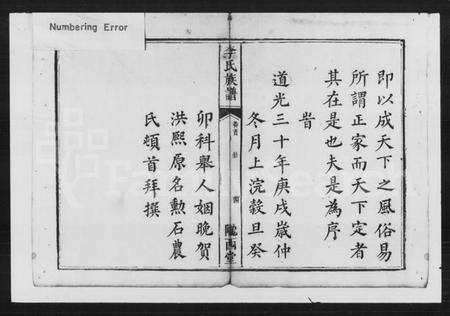 Numbering Error
即以成天下之風俗易
所謂正家而天下定者
其在是也夫是為序
旹
道光三十年庚戌歲仲
冬月上浣穀旦癸
李氏族譜
卷首
隴西堂
卯科舉人姻晚賀
洪熙原名勲石農
氏頓首拜撰